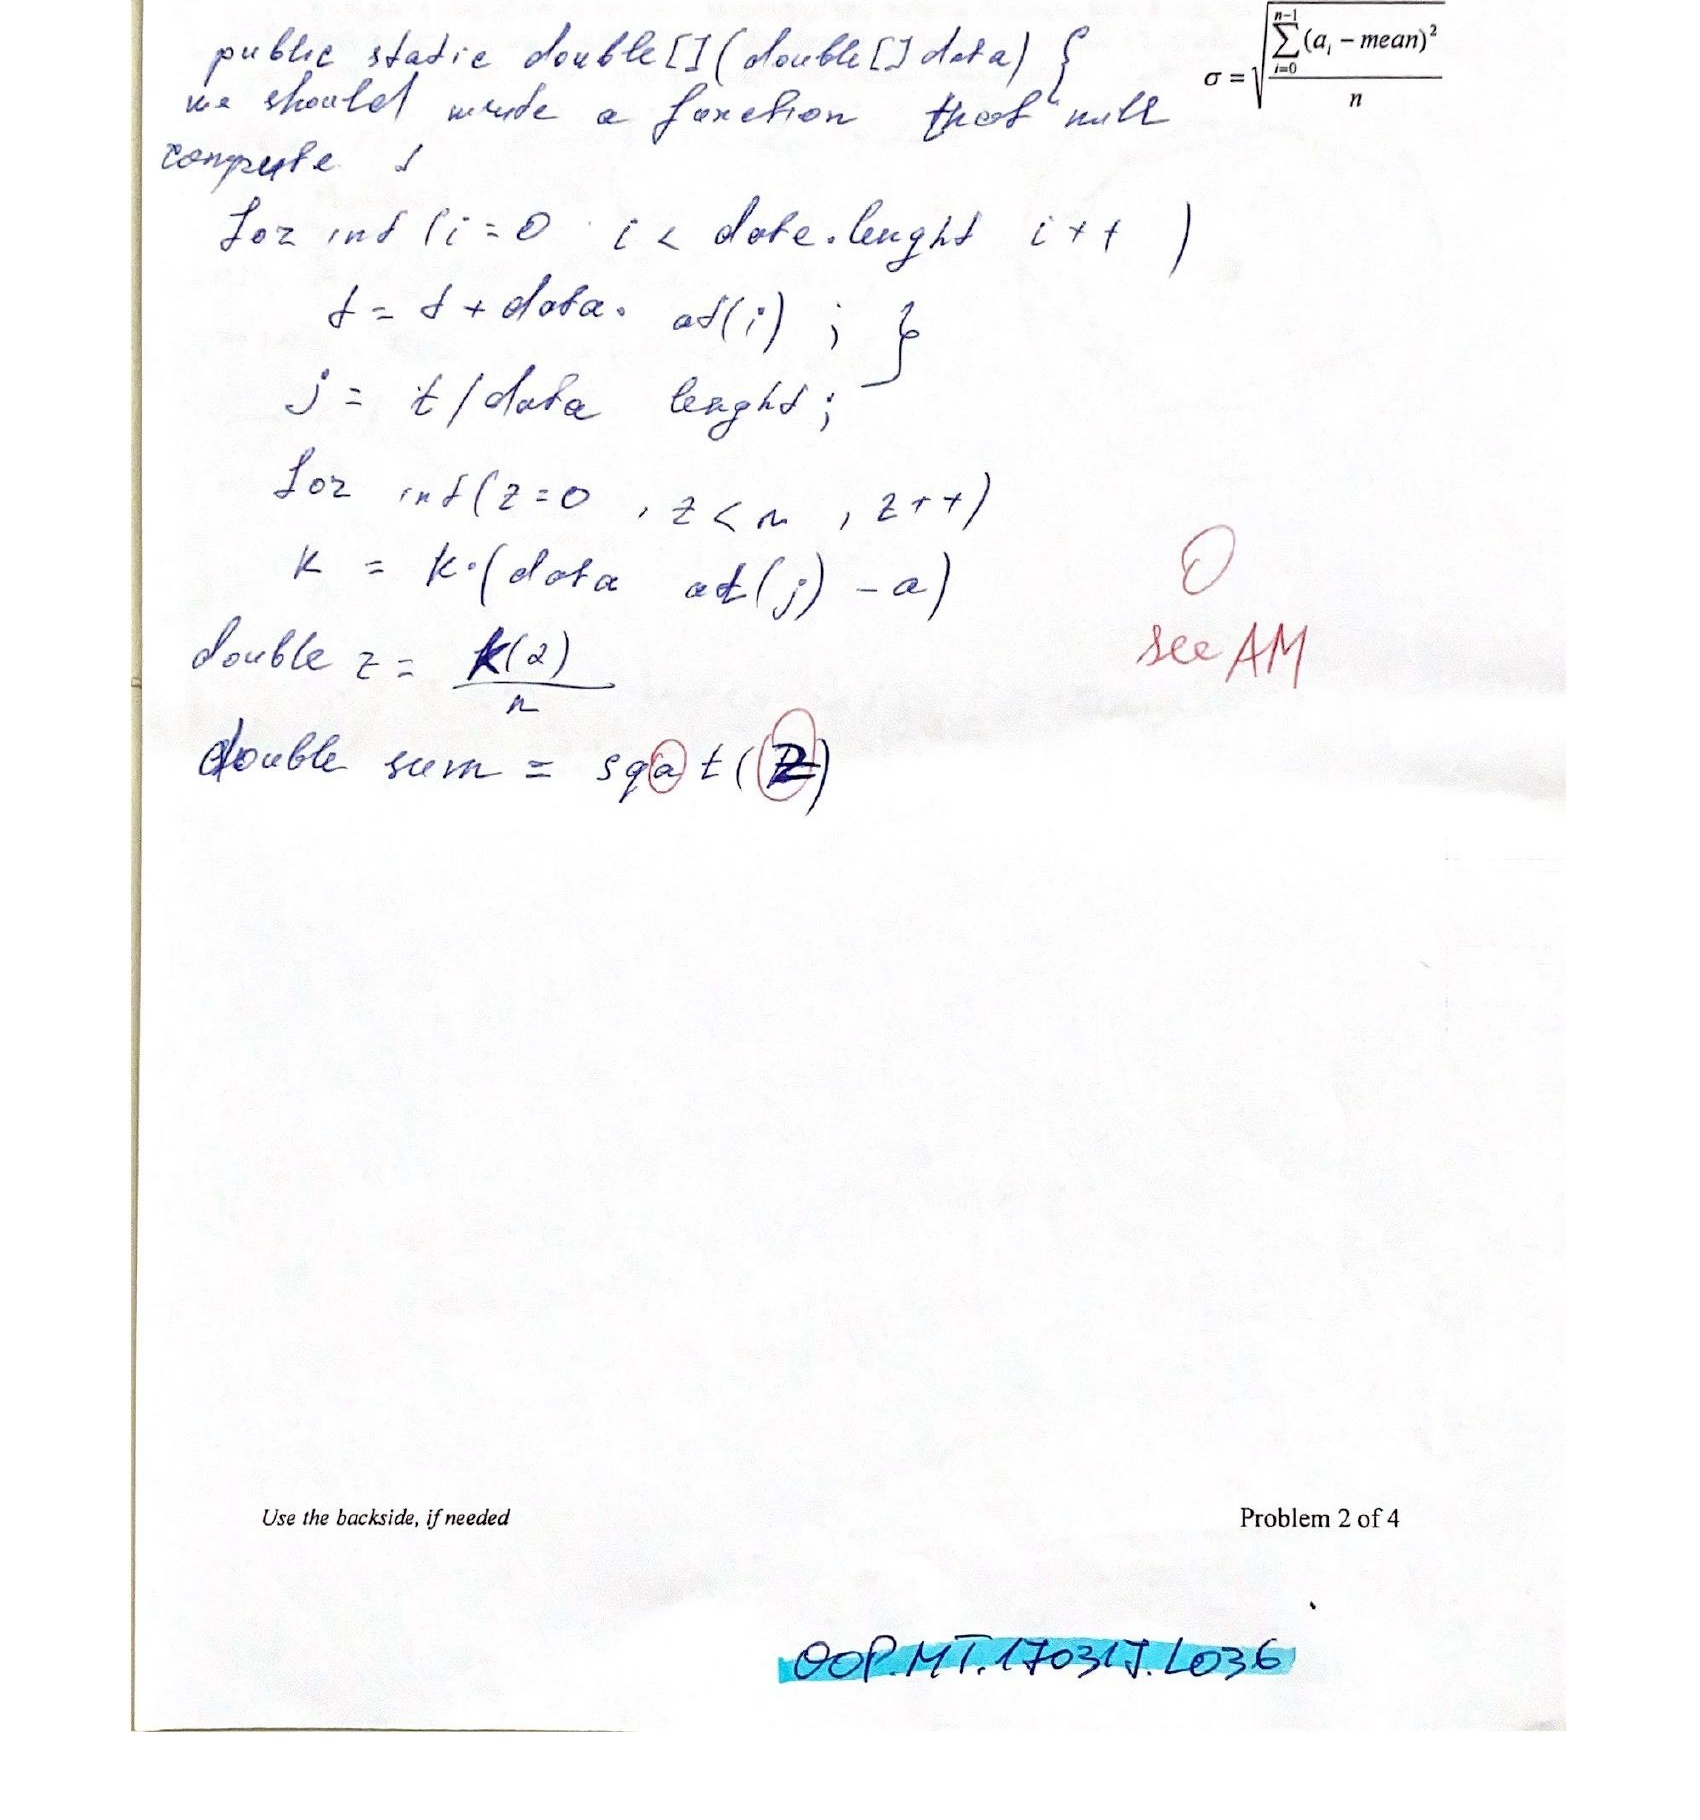 public static double[](double[] data) {
σ = √ n-1 ∑ i=0 (aᵢ – mean)² / n
we should write a function that will
compute t
for int (i = 0 i < date.lenght i++ )
t = t + data. at(i) ; }
j = t / data lenght ;
for int (z = 0 , z < n , z++)
k = k·(data at(j) - a)
0
see AM
double z = k(2) / n
double sum = sqat(z)
Use the backside, if needed
Problem 2 of 4
OOP.MT.170317.L036